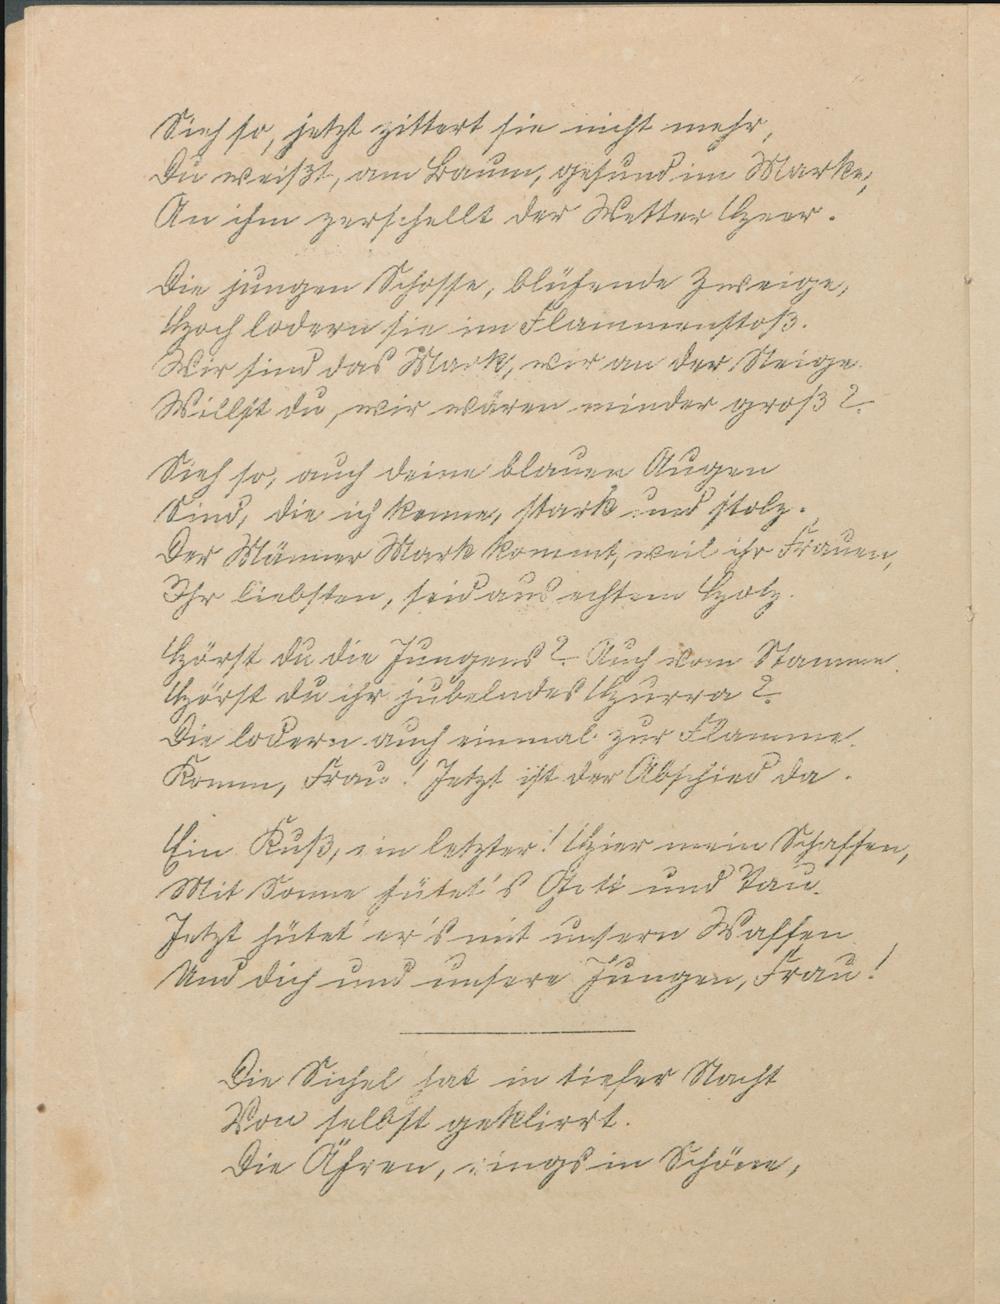 Sieh so, jetzt zittert sie nicht mehr,
Du weißt, am Baum, gesund im Marke,
An ihm zerschellt der Wetter Heer.
Die jungen Schosse, blühende Zweige,
Hoch lodern sie im Flammenstoß.
Wir sind das Mark, wir an der Neige
Willst du, wir wären minder groß?
Sieh so, auch deine blauen Augen
Sind, die ich kenne, stark und stolz.
Der Männer Mark kommt, weil ihr Frauen,
Ihr liebsten, seid aus echtem Holz.
Hörst du die Jungens? Auch vom Stamme.
Hörst du ihr jubelndes Hurra?
Die lodern auch einmal zur Flamme.
Komm, Frau! Jetzt ist der Abschied da.
Ein Kuß, ein letzter! Hier mein Schaffen,
Mit Sonne hütet's Gott und Tau.
Jetzt hütet er's mit unsern Waffen
Und dich und unsere Jungen, Frau!
Die Sichel hat in tiefer Nacht
Von selbst geklirrt.
Die Ähren, rings in Schöne,